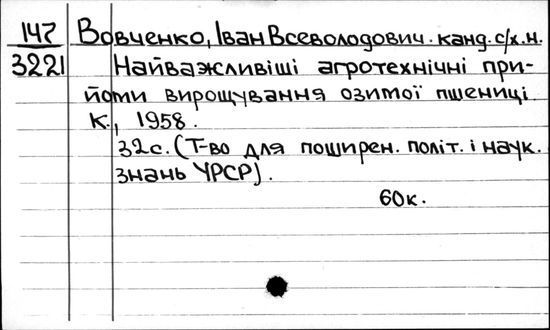 147 Вовченко, Іван Всеволодович. канд. с/х. н.
3221 Найважливіші агротехнічні при-
йоми вирощування озимої пшениці.
К., 1958.
32с. (Т-во для поширен. політ. і наук.
знань УРСР).
60к.